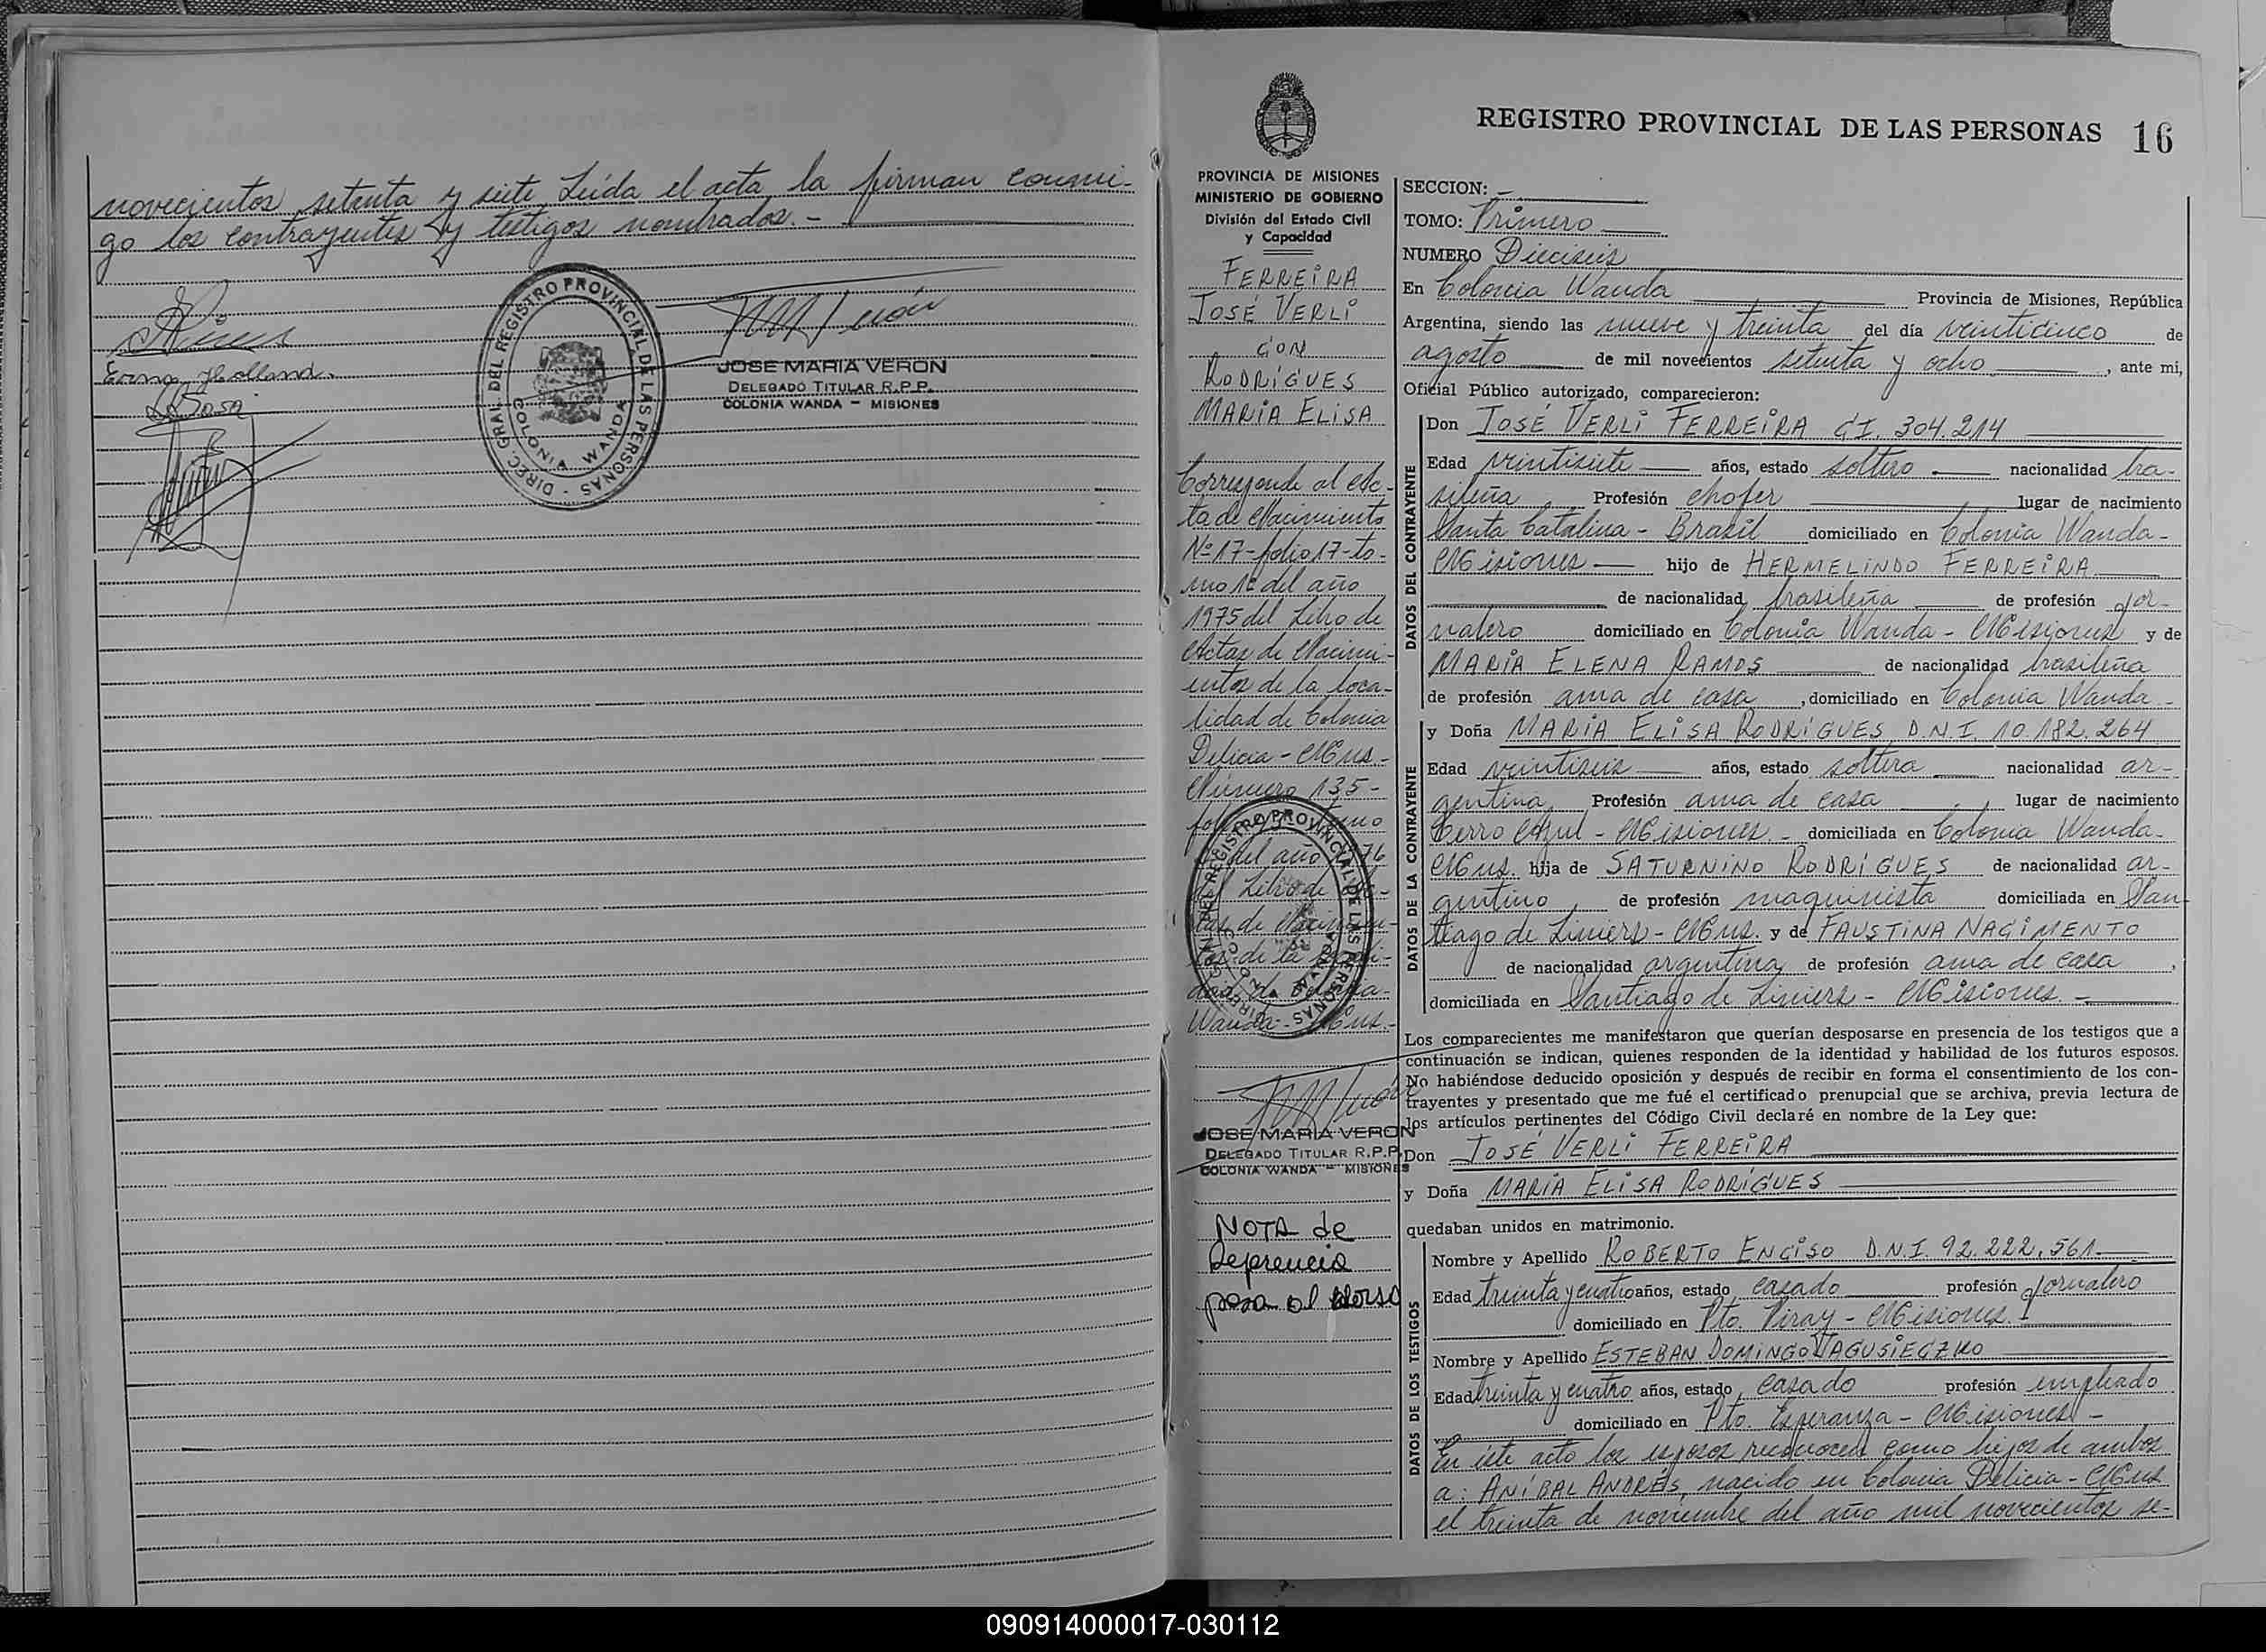 novecientos setenta y siete. Leída el acta la firman conmi-
go los contrayentes y testigos nombrados.-
Erna Holland.
DIREC. GRAL. DEL REGISTRO PROVINCIAL DE LAS PERSONAS -
COLONIA WANDA
JOSE MARIA VERON
DELEGADO TITULAR R.P.P.
COLONIA WANDA - MISIONES
REGISTRO PROVINCIAL DE LAS PERSONAS 16
PROVINCIA DE MISIONES
MINISTERIO DE GOBIERNO
División del Estado Civil
y Capacidad
FERREIRA
JOSÉ VERLI
CON
RODRÍGUES
MARÍA ELISA
Corresponde al ac-
ta de Nacimiento
Nº 17- folio 17- to-
mo 1º del año
1975 del Libro de
Actas de Nacimi-
entos de la loca-
lidad de Colonia
Delicia - Mnes.-
Número 135-
del año
del Libro de
de la
Wanda- Mnes.-
JOSE MARIA VERON
DELEGADO TITULAR R.P.P.
COLONIA WANDA - MISIONES
NOTA de
Referencia
pasa al dorso
SECCION: -
TOMO: Primero
NUMERO Dieciseis
En Colonia Wanda Provincia de Misiones, República
Argentina, siendo las nueve y treinta del día veinticinco de
agosto de mil novecientos setenta y ocho, ante mi,
Oficial Público autorizado, comparecieron:
DATOS DEL CONTRAYENTE
Don JOSÉ VERLI FERREIRA CI. 304.214
Edad veintisiete años, estado soltero nacionalidad bra-
sileña Profesión chofer lugar de nacimiento
Santa Catalina - Brasil domiciliado en Colonia Wanda-
Misiones hijo de HERMELINDO FERREIRA
de nacionalidad brasileña de profesión jor-
nalero domiciliado en Colonia Wanda - Misiones y de
MARÍA ELENA RAMOS de nacionalidad brasileña
de profesión ama de casa, domiciliado en Colonia Wanda.-
DATOS DE LA CONTRAYENTE
y Doña MARÍA ELISA RODRÍGUES, D.N.I. 10.182.264
Edad veintiseis años, estado soltera nacionalidad ar-
gentina, Profesión ama de casa, lugar de nacimiento
Cerro Azul - Misiones.- domiciliada en Colonia Wanda-
Mnes. hija de SATURNINO RODRÍGUES de nacionalidad ar-
gentino, de profesión maquinista domiciliada en San-
tiago de Liniers- Mnes. y de FAUSTINA NACIMENTO
de nacionalidad argentina, de profesión ama de casa,
domiciliada en Santiago de Liniers - Misiones.-
Los comparecientes me manifestaron que querían desposarse en presencia de los testigos que a
continuación se indican, quienes responden de la identidad y habilidad de los futuros esposos.
No habiéndose deducido oposición y después de recibir en forma el consentimiento de los con-
trayentes y presentado que me fué el certificado prenupcial que se archiva, previa lectura de
los artículos pertinentes del Código Civil declaré en nombre de la Ley que:
Don JOSÉ VERLI FERREIRA
y Doña MARÍA ELISA RODRÍGUES
quedaban unidos en matrimonio.
DATOS DE LOS TESTIGOS
Nombre y Apellido ROBERTO ENCISO D.N.I. 92.222.561
Edad treinta y cuatro años, estado casado profesión jornalero
domiciliado en Pto. Piray - Misiones.
Nombre y Apellido ESTEBAN DOMINGO YAGUSIECZKO
Edad treinta y cuatro años, estado casado profesión empleado
domiciliado en Pto. Esperanza - Misiones -
En este acto los esposos reconocen como hijos de ambos
a: ANÍBAL ANDRÉS, nacido en Colonia Delicia - Mnes
el treinta de noviembre del año mil novecientos se-
090914000017-030112